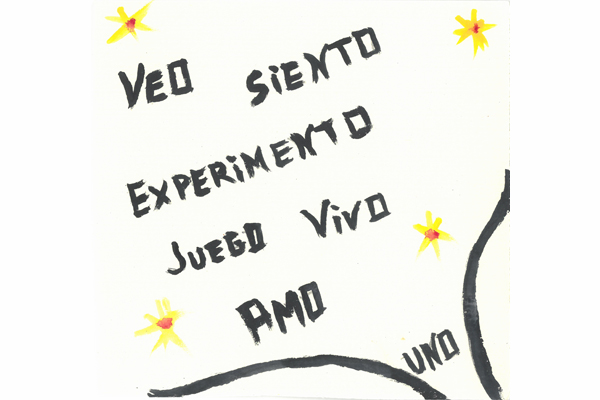 VEO SiENTO
EXPERiMENTO
JUEGO ViVO
AMO
UNO